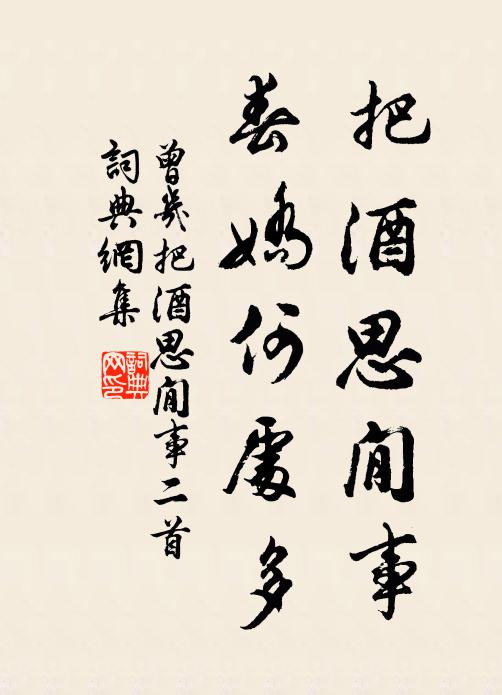 把酒思閒事
春嬌何處多
曾幾把酒思閒事二首
詞典網集
詞典網印